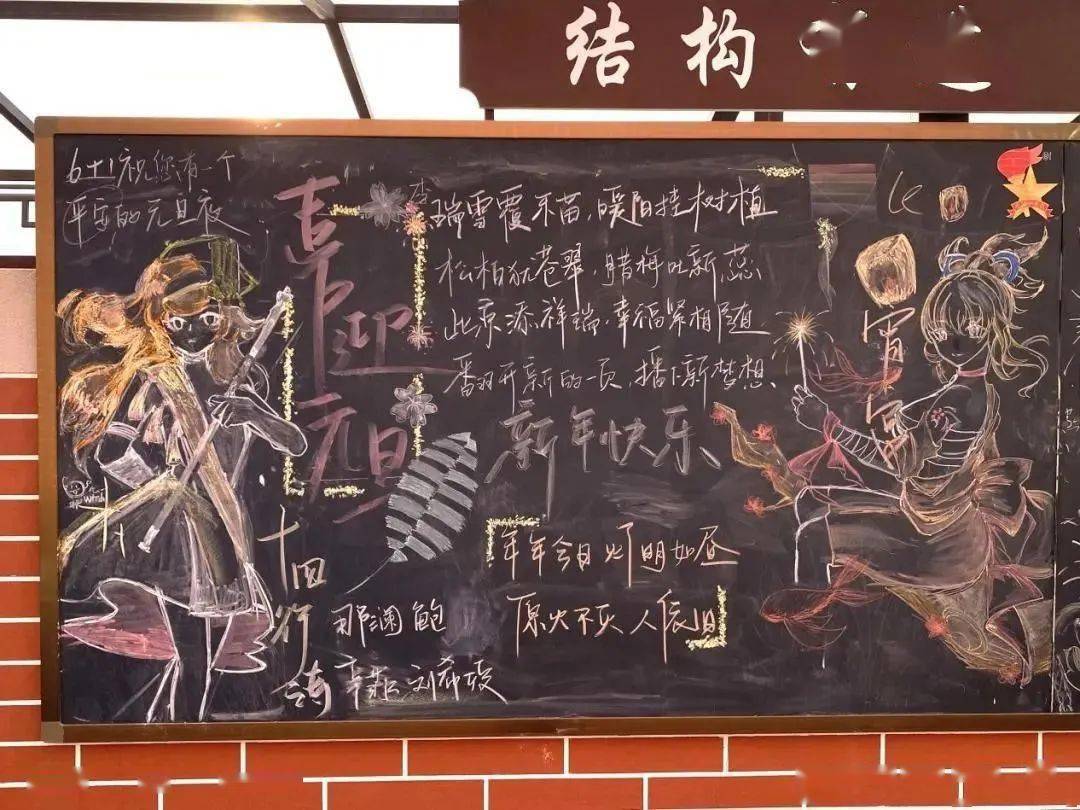 结构
6+1祝您有一个
平安的元旦夜
喜迎
元旦
瑞雪覆禾苗，暖阳挂树植
松柏犹苍翠，腊梅吐新蕊
此京添祥瑞，幸福紧相随
翻开新的一页，播下新梦想
新年快乐
宵宫
年年今日灯明如昼
原火不灭人依旧
十四行